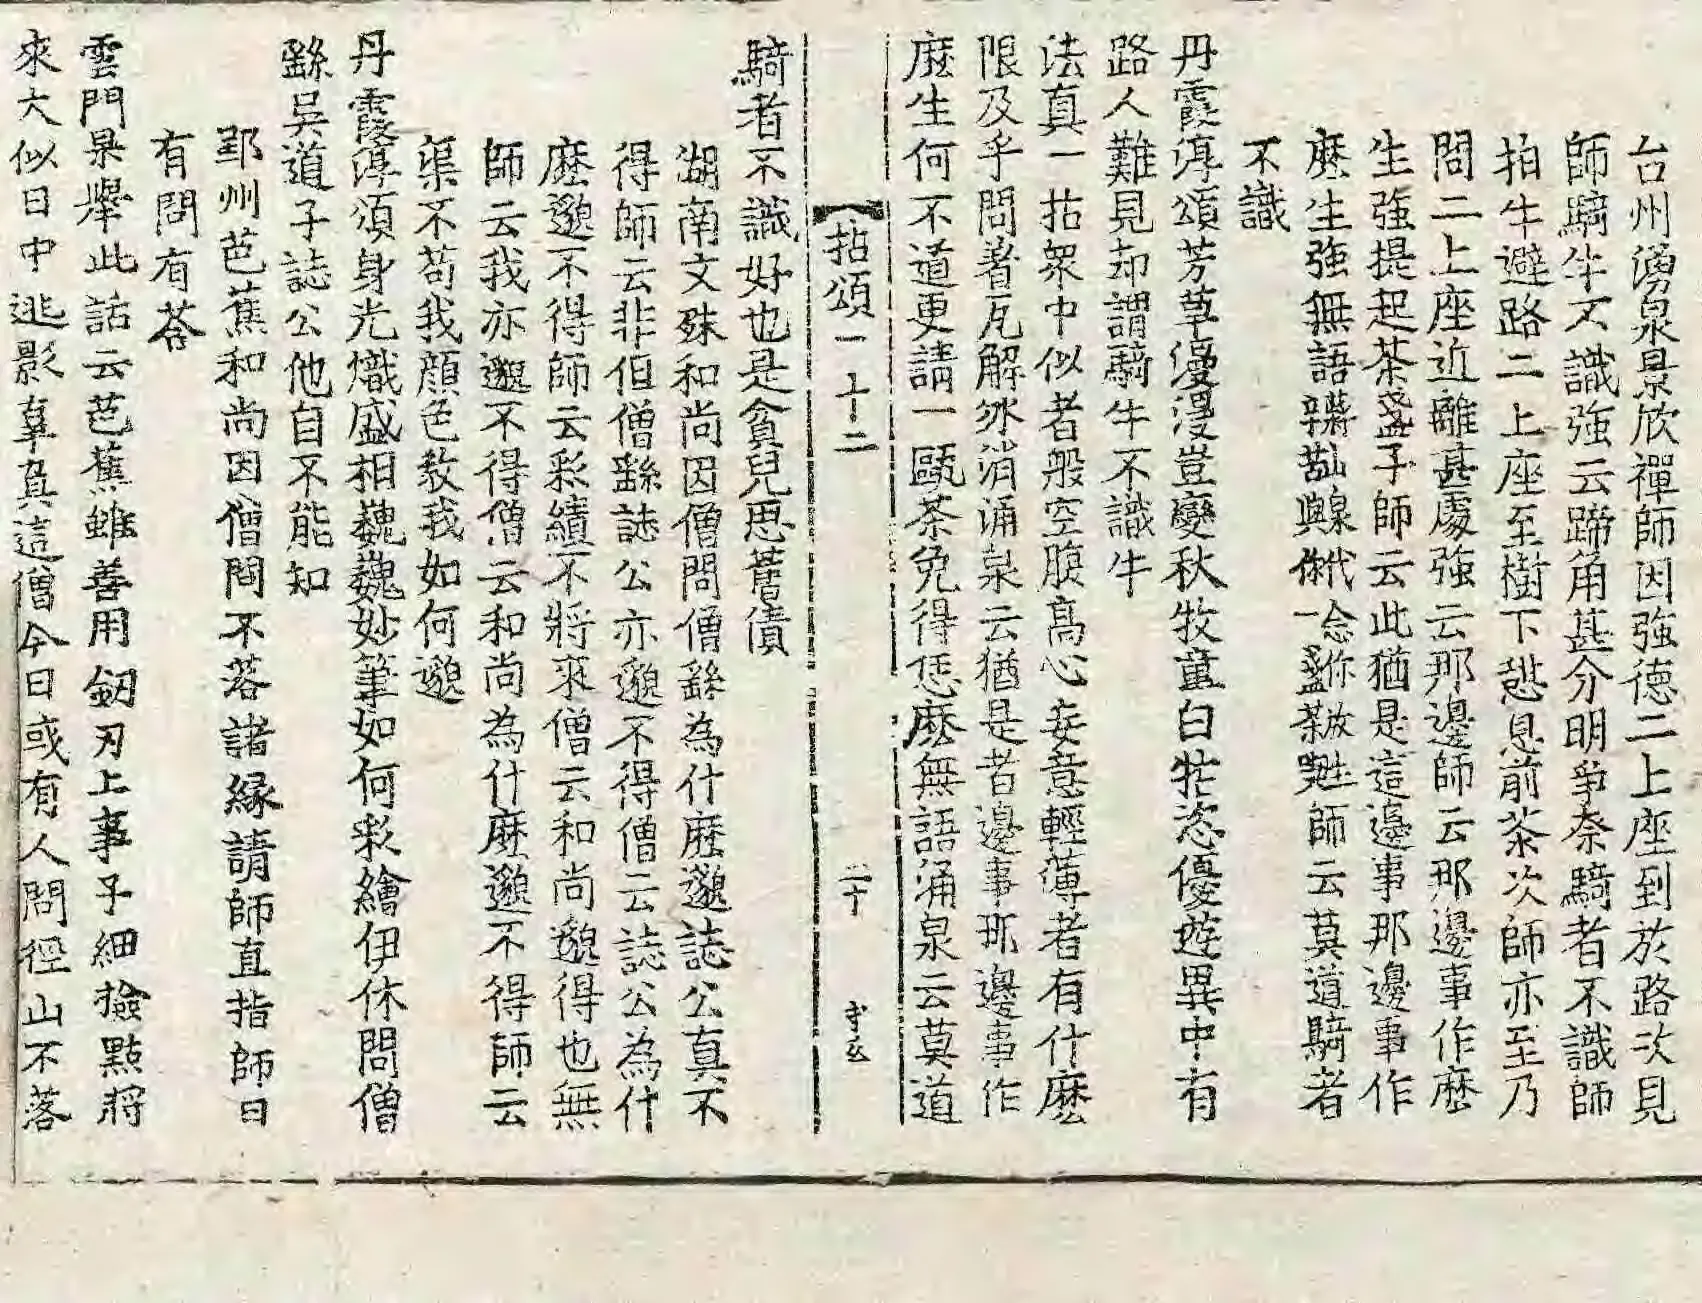 台州湧泉景欣禪師因強德二上座到於路次見
師騎牛不識強云蹄角甚分明爭奈騎者不識師
拍牛避路二上座至樹下憩息前茶次師亦至乃
問二上座近離甚處強云那邊師云那邊事作麽
生強提起茶盞子師云此猶是這邊事那邊事作
麽生強無語 代念你放甦 師云莫道騎者
不識
丹霞淳頌芳草漫漫豈變秋牧童白牯恣優遊異中有
路人難見却謂騎牛不識牛
法真一拈衆中似者般空腹高心妄意輕薄者有什麽
限及乎問著瓦解氷消涌泉云猶是者邊事那邊事作
麽生何不道更請一甌茶免得恁麽無語涌泉云莫道
拈頌一 十二 二十
騎者不識好也是貧兒思舊債
湖南文殊和尚因僧問僧繇為什麽邈誌公真不
得師云非但僧繇誌公亦邈不得僧云誌公為什
麽邈不得師云彩繢不將來僧云和尚邈得也無
師云我亦邈不得僧云和尚為什麽邈不得師云
渠不苟我顔色教我如何邈
丹霞淳頌身光熾盛相巍巍妙筆如何彩繪伊休問僧
繇吳道子誌公他自不能知
郢州芭蕉和尚因僧問不落諸緣請師直指師曰
有問有荅
雲門杲擧此話云芭蕉雖善用劒刃上事子細撿點將
來大似日中逃影辜真這僧今日或有人問徑山不落